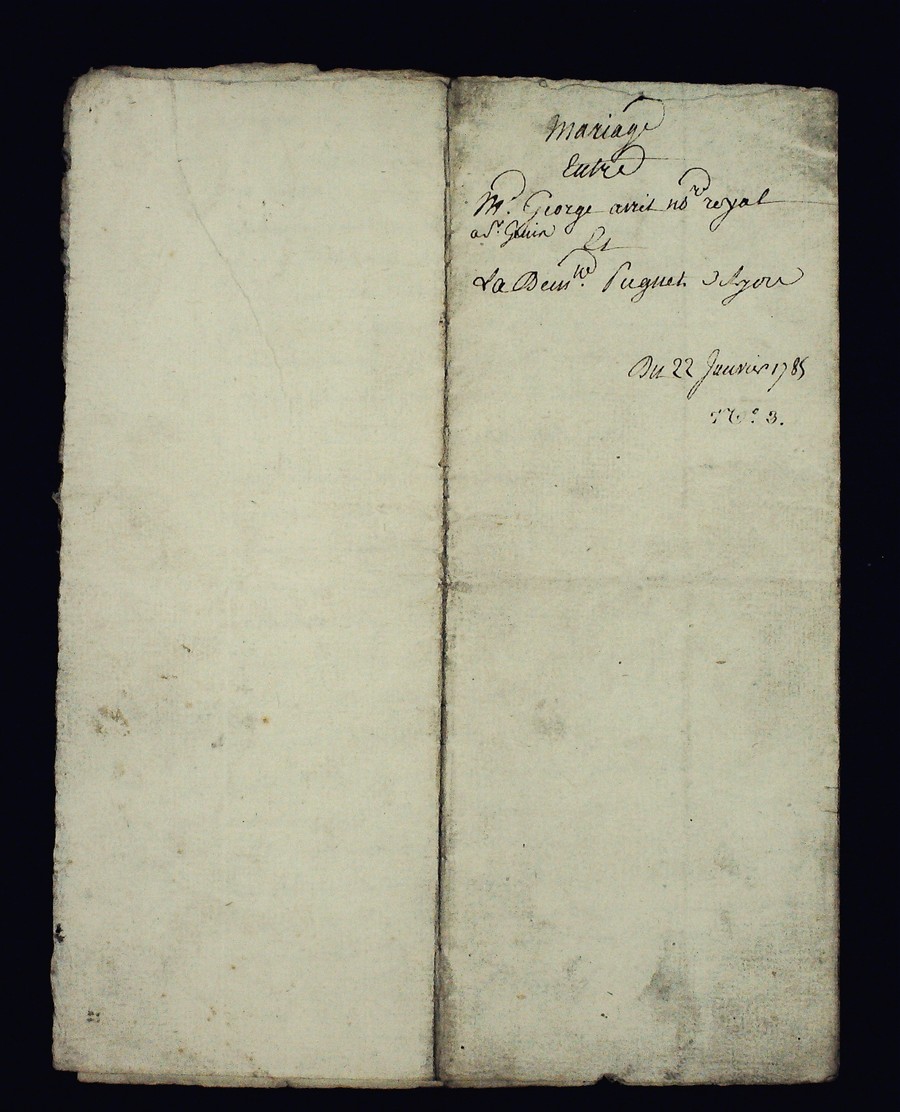 Mariage
Entre
Mr. George avril nore royal
a St. Juin
Et
La Demlle. Pugnet d'Ayou
Du 22 Janvier 1785
No. 3.